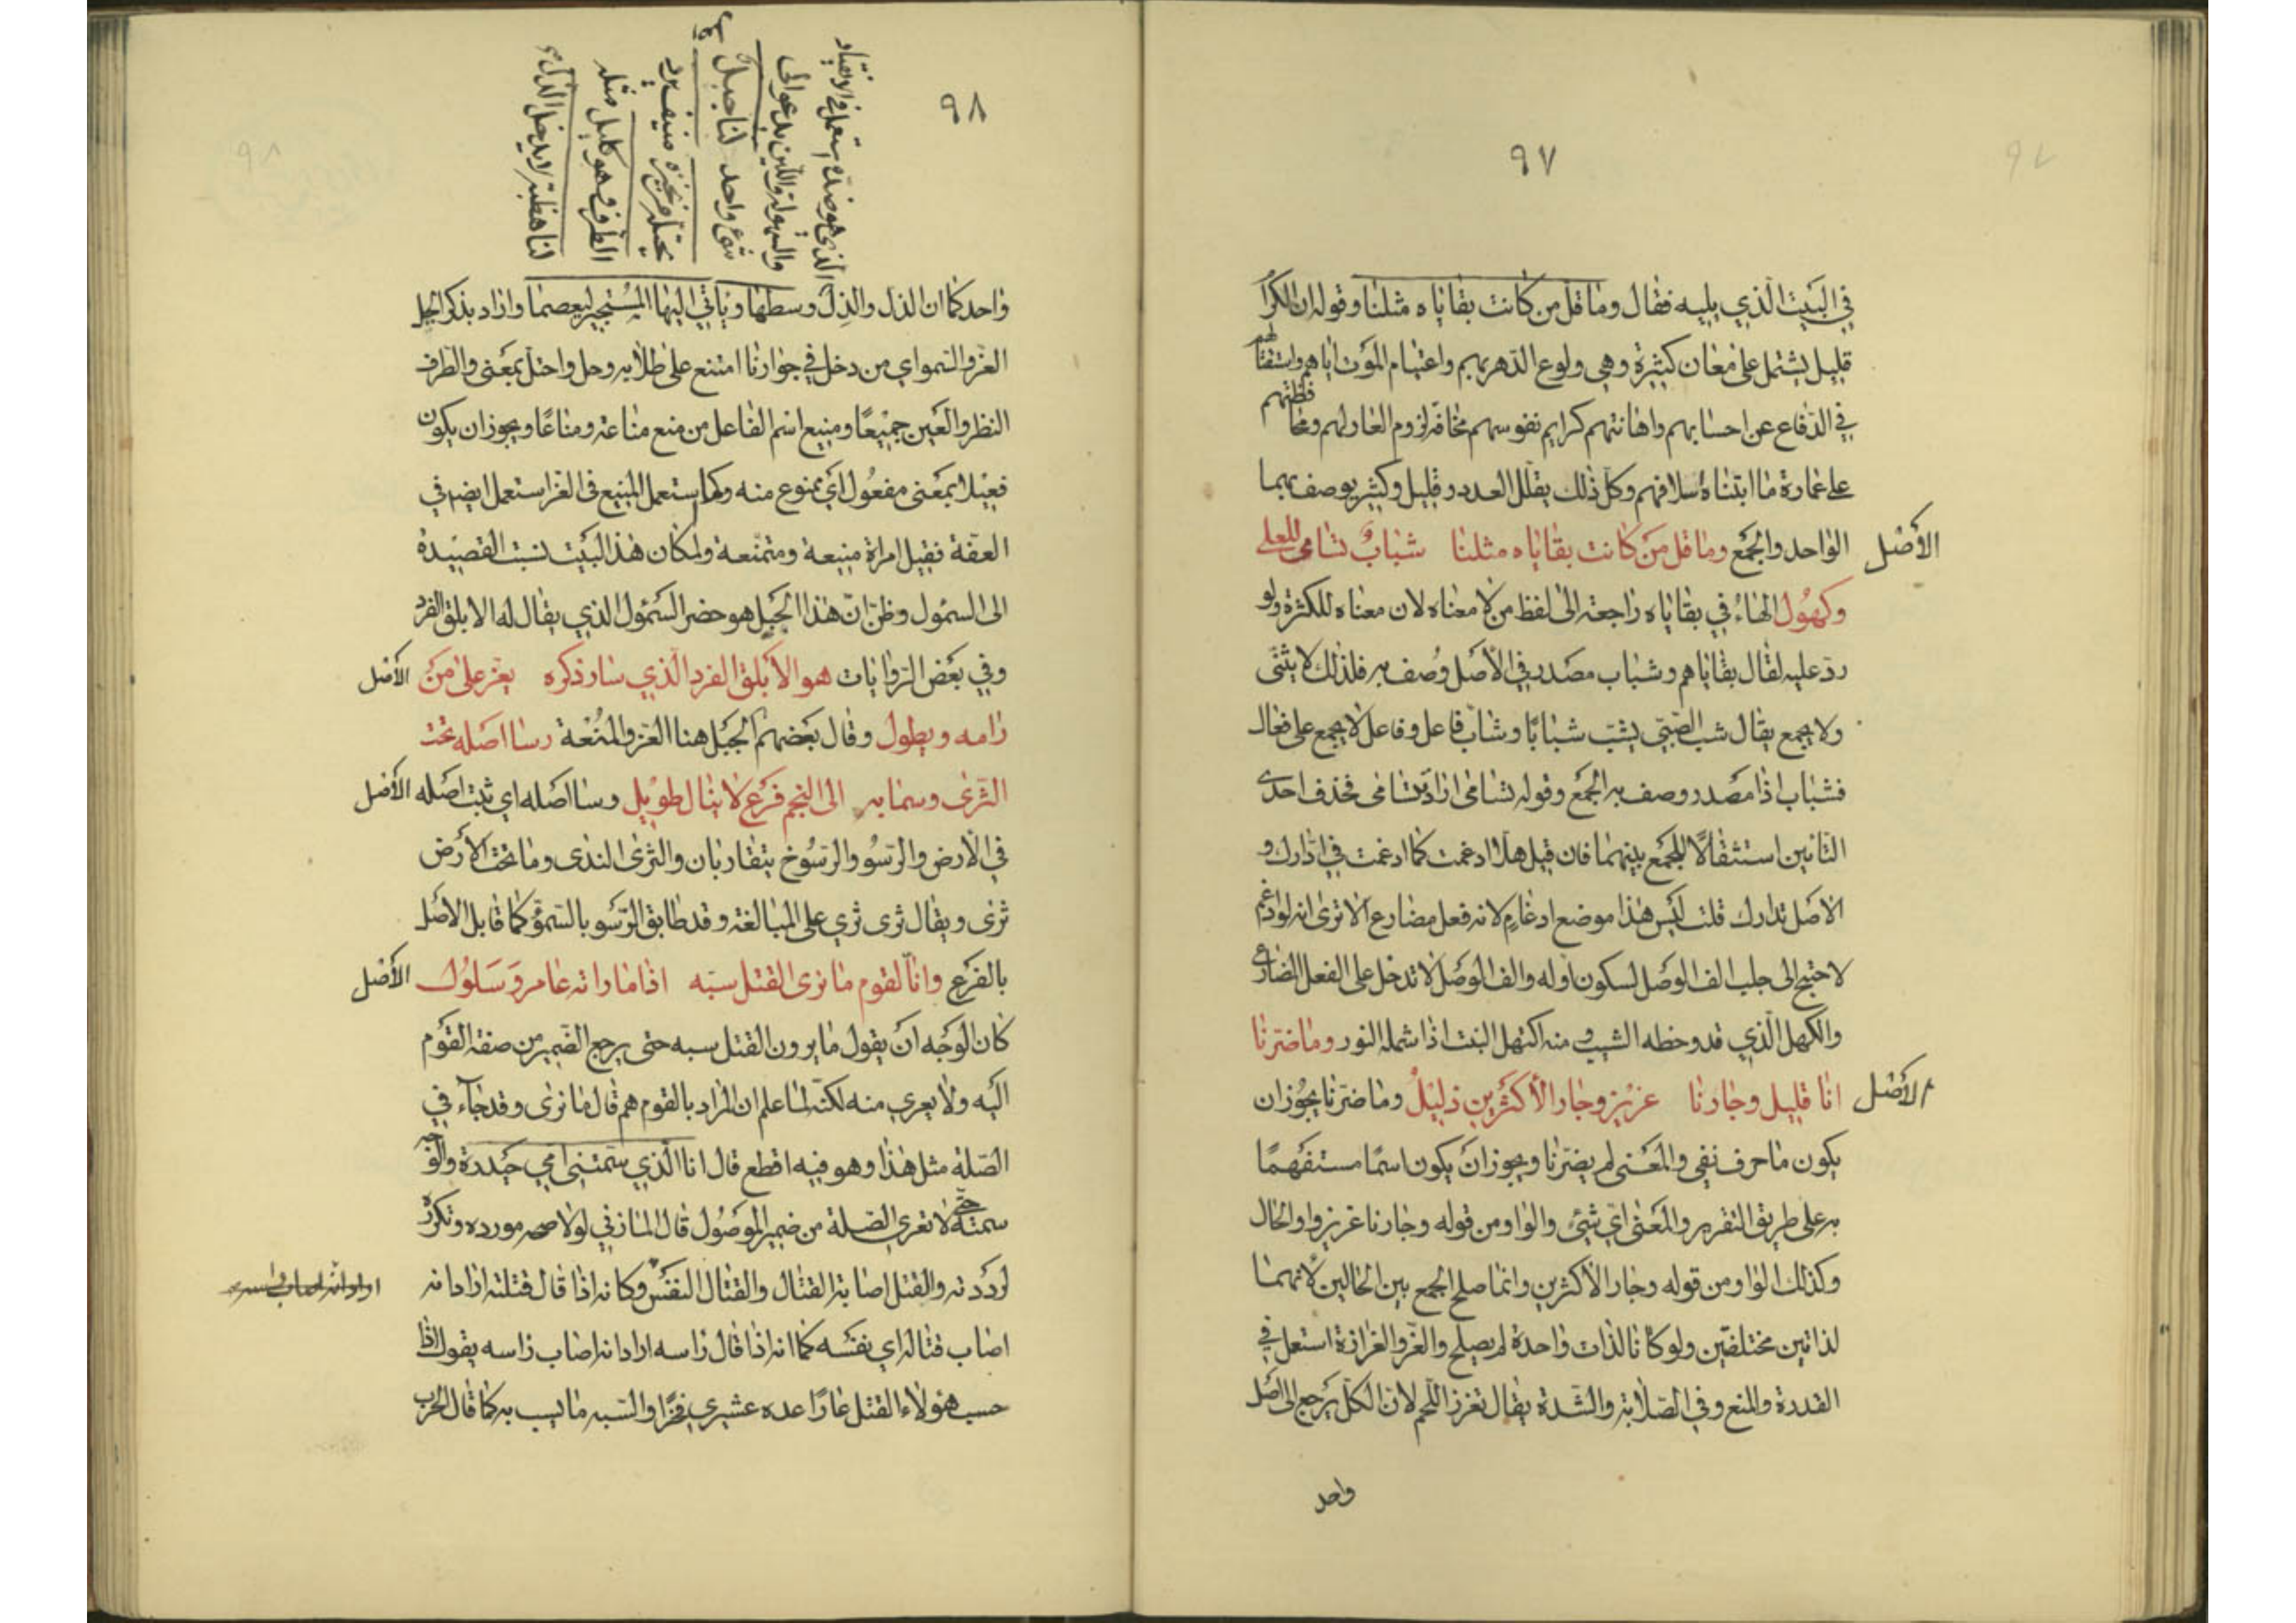 ٩٧
في البيت الذي يليه فقال وما قل من كانت بقاياه مثلنا وقوله ان الكرام
قليل يشتمل على معان كثيرة وهي ولوع الدهر بهم واعتيام الموت اياهم واستقتالهم
في الدفاع عن احسابهم واهانتهم كرايم نفوسهم مخافة لزوم العار لهم ومحافظتهم
على عمارة ما ابتناه اسلافهم وكل ذلك يقلل العدد وقليل وكثير يوصف بهما
الأصل الواحد والجمع وما قل من كانت بقاياه مثلنا شباب تسامى للعلى
وكهول الهاء في بقاياه راجعة الى لفظ من لا معناه لان معناه للكثرة ولو
رد عليه لقال بقاياهم وشباب مصدر في الأصل وصف به فلذلك لا يثنى
ولا يجمع يقال شب الصبي يشب شبابا وشاب فاعل وفاعل لا يجمع على فعال
فشباب اذا مصدر وصف به الجمع وقوله تسامى اراد تتسامى فحذف احدى
التائين استثقالا للجمع بينهما فان قيل هلا ادغمت كما ادغمت في ادارك و
الاصل تدارك قلت ليس هذا موضع ادغام لانه فعل مضارع الا ترى انه لو ادغم
لاحتيج الى جلب الف الوصل لسكون اوله والف الوصل لا تدخل على الفعل المضارع
والكهل الذي قد وخطه الشيب ومنه اكتهل النبت اذا شمله النور وما ضرنا
الأصل انا قليل وجارنا عزيز وجار الأكثرين ذليل وما ضرنا يجوز ان
يكون ما حرف نفي والمعنى لم يضرنا ويجوز ان يكون اسما مستفهما
به على طريق التقرير والمعنى اي شيئ والواو من قوله وجارنا عزيز واو الحال
وكذلك الواو من قوله وجار الأكثرين وانما صلح الجمع بين الحالين لأنهما
لذاتين مختلفتين ولو كانا لذات واحدة لم يصلح والعز والعزازة استعمل في
القدرة والمنع وفي الصلابة والشدة يقال تعزز اللحم لان الكل يرجع الى اصل
واحد
٩٨
الذي هو ضده يستعمل في الانقياد
والسهولة واللين يدعو الى
شيئ واحد لنا جبل
يحتله من نجيره منيف يرد
الطرف وهو كليل مثله
لنا هضبة لا يدخل الذل
واحد كما ان الذل والذل وسطها وياتي اليها المستجير ليعصما واراد بذكر الجبل
العز والسمو اي من دخل في جوارنا امتنع على طلابه وحل واحتل بمعنى والطرف
النظر والعين جميعا ومنيع اسم الفاعل من منع مناعة ومناعا ويجوز ان يكون
فعيلا بمعنى مفعول اي ممنوع منه وكما استعمل المنيع في العز استعمل ايضا في
العفة فقيل امراة منيعة ومتمنعة ولمكان هذا البيت نسبت القصيدة
الى السمؤل وظن ان هذا الجبل هو حضر السمؤل الذي يقال له الابلق الفرد
وفي بعض الروايات هو الأبلق الفرد الذي سار ذكره يعز على من الأصل
رامه ويطول وقال بعضهم الجبل هنا العز والمنعة رسا اصله تحت
الثرى وسما به الى النجم فرع لا ينال طويل رسا اصله اي ثبت اصله الأصل
في الأرض والرسو والرسوخ يتقاربان والثرى الندى وما تحت الأرض
ثرى ويقال ثرى ثري على المبالغة وقد طابق الرسو بالسمو كما قابل الاصل
بالفرع وانا لقوم ما نرى القتل سبه اذا ما راته عامر وسلول الأصل
كان الوجه ان يقول ما يرون القتل سبه حتى يرجع الضمير من صفة القوم
اليه ولا يعري منه لكنه لما علم ان المراد بالقوم هم قال ما نرى وقد جاء في
الصلة مثل هذا وهو فيه اقطع قال انا الذي سمتني امي حيدرة والوجه
سمته حتى لا تعري الصلة من ضمير الموصول قال المازني لولا صحة مورده وتكرره
لرددته والقتل اصابة القتال والقتال النفس وكانه اذا قال قتلته اراد انه
اصاب قتاله اي نفسه كما انه اذا قال راسه اراد انه اصاب راسه يقول اذا
حسب هؤلاء القتل عارا عده عشيري فخرا والسبه ما يسب به كما قال الحرب